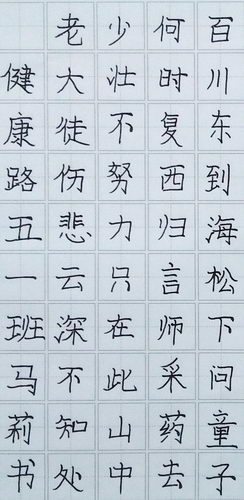 百川东到海松下问童子
何时复西归言师采药去
少壮不努力只在此山中
老大徒伤悲云深不知处
健康路五一班马莉书